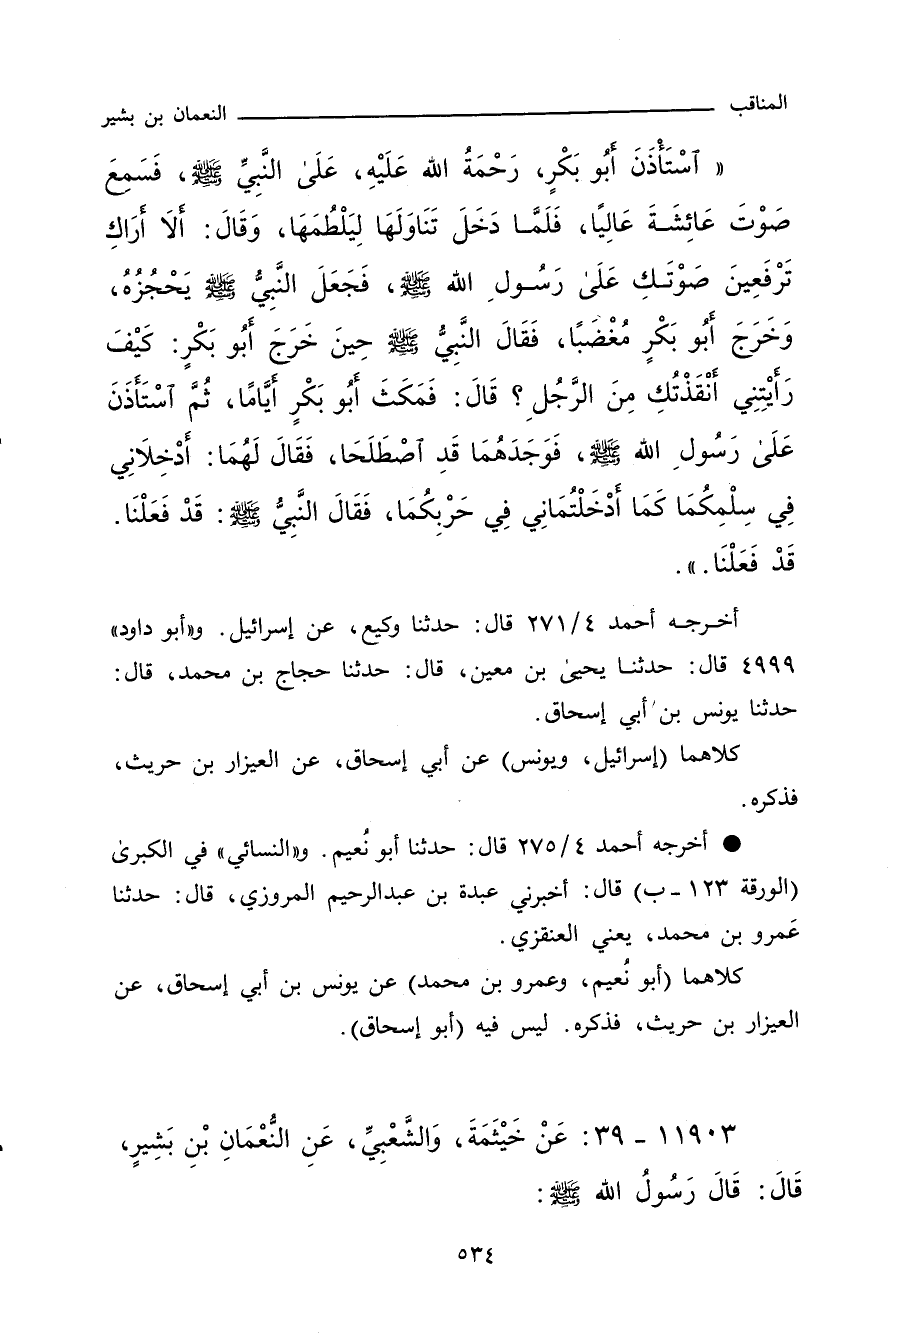 المناقب ــــــــــــــــــــــــــــــــــــــــ النعمان بن بشير
« ٱسْتَأْذَنَ أَبُو بَكْرٍ، رَحْمَةُ الله عَلَيْهِ، عَلَىٰ النَّبِيِّ ﷺ، فَسَمِعَ
صَوْتَ عَائِشَةَ عَالِيًا، فَلَمَّا دَخَلَ تَنَاوَلَهَا لِيَلْطُمَهَا، وَقَالَ: أَلَا أَرَاكِ
تَرْفَعِينَ صَوْتَكِ عَلَىٰ رَسُولِ الله ﷺ، فَجَعَلَ النَّبِيُّ ﷺ يَحْجُزُهُ،
وَخَرَجَ أَبُو بَكْرٍ مُغْضَبًا، فَقَالَ النَّبِيُّ ﷺ حِينَ خَرَجَ أَبُو بَكْرٍ: كَيْفَ
رَأَيْتِنِي أَنْقَذْتُكِ مِنَ الرَّجُلِ؟ قَالَ: فَمَكَثَ أَبُو بَكْرٍ أَيَّامًا، ثُمَّ ٱسْتَأْذَنَ
عَلَىٰ رَسُولِ الله ﷺ، فَوَجَدَهُمَا قَدِ ٱصْطَلَحَا، فَقَالَ لَهُمَا: أَدْخِلَانِي
فِي سِلْمِكُمَا كَمَا أَدْخَلْتُمَانِي فِي حَرْبِكُمَا، فَقَالَ النَّبِيُّ ﷺ: قَدْ فَعَلْنَا.
قَدْ فَعَلْنَا.».
أخرجه أحمد ٢٧١/٤ قال: حدثنا وكيع، عن إسرائيل. و«أبو داود»
٤٩٩٩ قال: حدثنا يحيىٰ بن معين، قال: حدثنا حجاج بن محمد، قال:
حدثنا يونس بن أبي إسحاق.
كلاهما (إسرائيل، ويونس) عن أبي إسحاق، عن العيزار بن حريث،
فذكره.
● أخرجه أحمد ٢٧٥/٤ قال: حدثنا أبو نُعيم. و«النسائي» في الكبرىٰ
(الورقة ١٢٣ - ب) قال: أخبرني عبدة بن عبدالرحيم المروزي، قال: حدثنا
عَمرو بن محمد، يعني العنقزي.
كلاهما (أبو نُعيم، وعمرو بن محمد) عن يونس بن أبي إسحاق، عن
العيزار بن حريث، فذكره. ليس فيه (أبو إسحاق).
١١٩٠٣ - ٣٩: عَنْ خَيْثَمَةَ، وَالشَّعْبِيِّ، عَنِ النُّعْمَانِ بْنِ بَشِيرٍ،
قَالَ: قَالَ رَسُولُ الله ﷺ:
٥٣٤